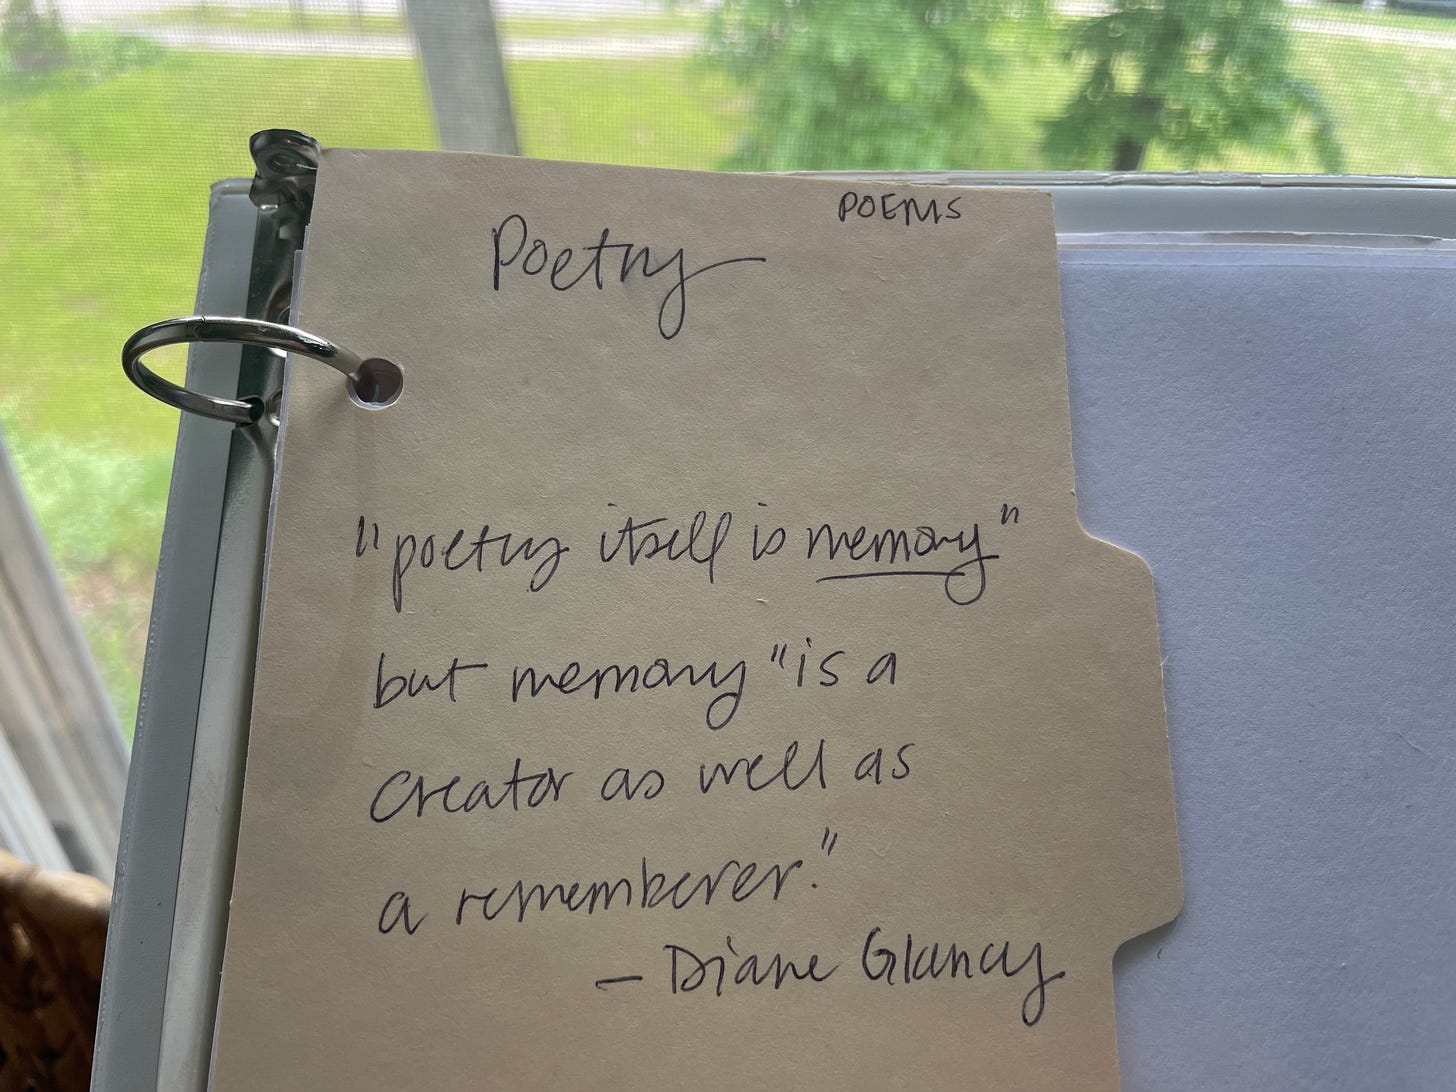 POEMS
Poetry
"poetry itself is memory"
but memory "is a
creator as well as
a rememberer."
— Diane Glancy